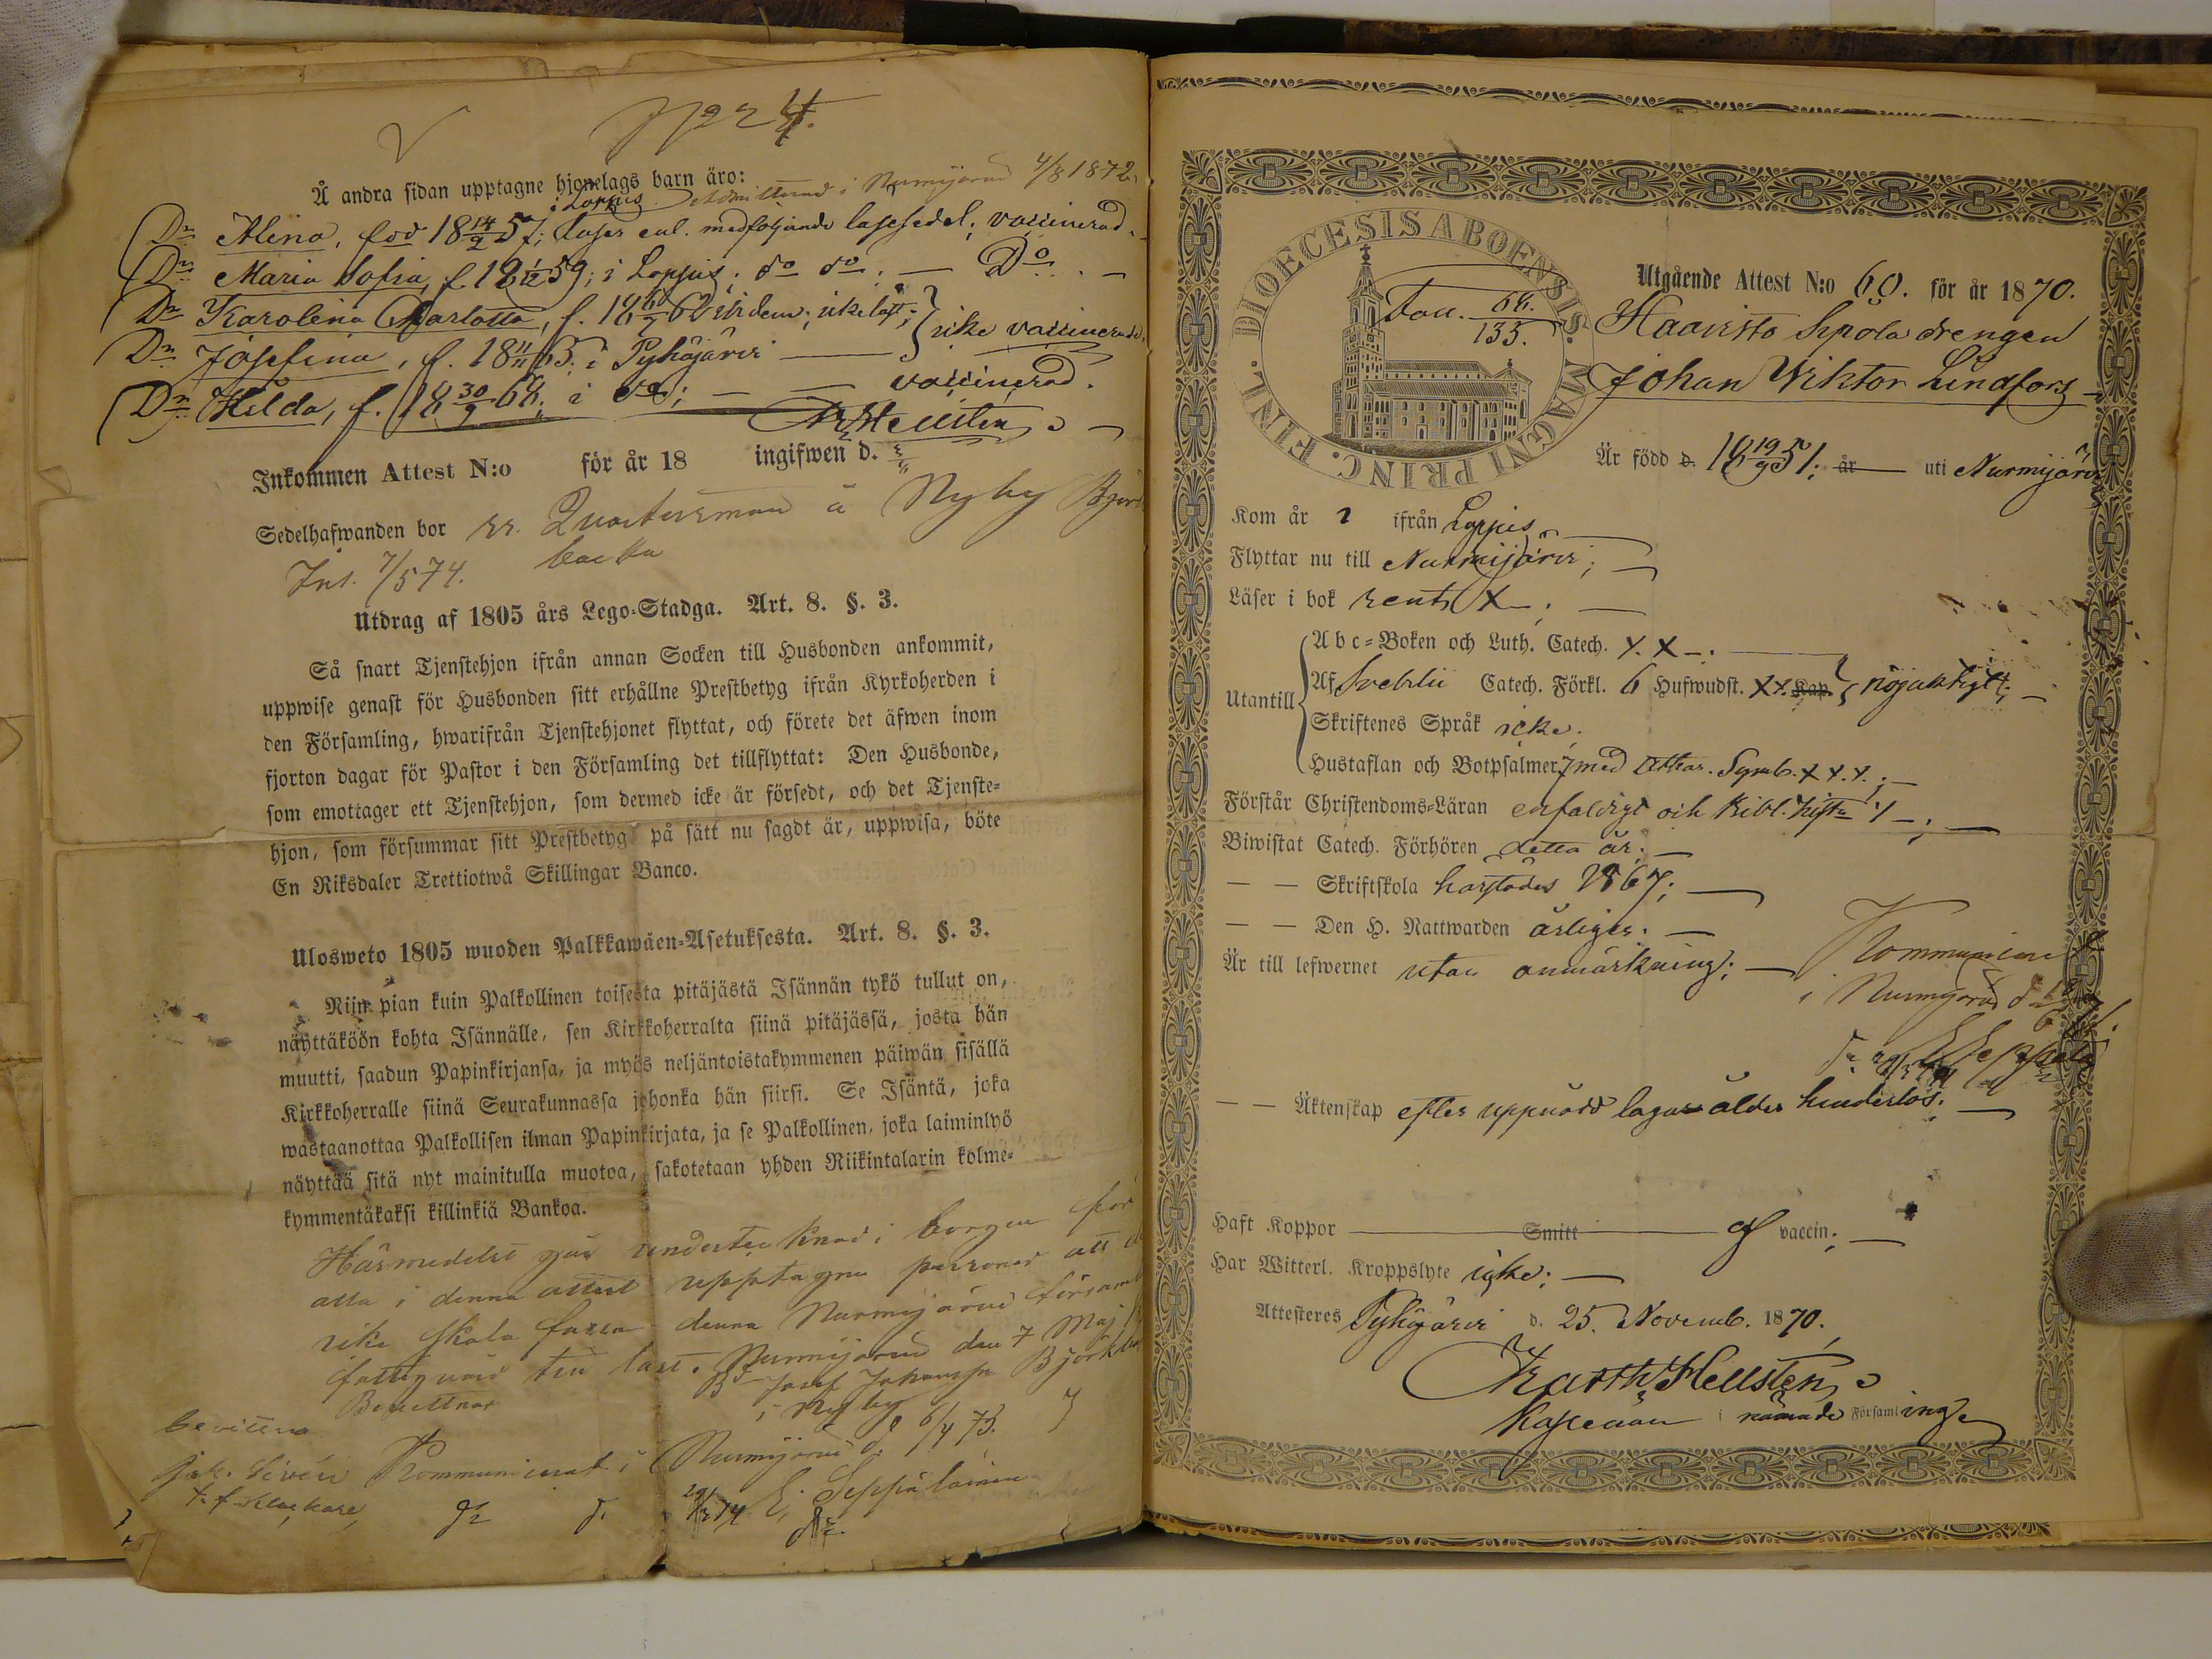 No 24.
Å andra sidan upptagne hjonelags barn äro:
i Loppis Admitterad i Nurmijärvi 4/8 1872.
Dr Alina, född 18 14/2 57; läser enl. medföljande läsesedel; vaccinerad.
Dr Maria Sofia, f. 18 1/12 59; i Loppis; do do. — Do. —
Dr Karolina Charlotta, f. 18 /7 62 icke läst; } icke vaccinerade.
Dr Josefina, f. 18 11/11 65; i Pyhäjärvi —
Dr Hilda, f. 18 30/9 68; i do; — vaccinerad.
Hellsten
Inkommen Attest N:o för år 18 ingifwen d.
Sedelhafwanden bor Qvartersman å Nyby
backa
Inl. 7/5 74.
Utdrag af 1805 års Lego-Stadga. Art. 8. §. 3.
Så snart Tjenstehjon ifrån annan Socken till Husbonden ankommit,
uppwise genast för Husbonden sitt erhållne Prestbetyg ifrån Kyrkoherden i
den Församling, hwarifrån Tjenstehjonet flyttat, och förete det äfwen inom
fjorton dagar för Pastor i den Församling det tillflyttat: Den Husbonde,
som emottager ett Tjenstehjon, som dermed icke är försedt, och det Tjenste-
hjon, som försummar sitt Prestbetyg på sätt nu sagdt är, uppwisa, böte
En Riksdaler Trettiotwå Skillingar Banco.
Ulosweto 1805 wuoden Palkkawäen-Asetuksesta. Art. 8. §. 3.
Niin pian kuin Palkollinen toisesta pitäjästä Isännän tykö tullut on,
näyttäköön kohta Isännälle, sen Kirkkoherralta siinä pitäjässä, josta hän
muutti, saadun Papinkirjansa, ja myös neljäntoistakymmenen päiwän sisällä
Kirkkoherralle siinä Seurakunnassa johonka hän siirsi. Se Isäntä, joka
wastaanottaa Palkollisen ilman Papinkirjata, ja se Palkollinen, joka laiminlyö
näyttää sitä nyt mainitulla muotoa, sakotetaan yhden Riikintalarin kolme-
kymmentäkaksi killinkiä Bankoa.
Härmedelst går undertecknad i borgen för
alla i denna attest upptagna personer att de
icke skola falla denna Nurmijärvi församl
fattigvård till last. Nurmijärvi den 7 Maj
Josef Johansson Björkba
i Nyby
bevittna
Jak. Sivén Kommunicerat i Nurmijärvi d. 6/4 73.
t. f. klockare
29/3 74 E. Seppälainen
DIOECESIS ABOENSIS. MAGNI PRINC. FINL.
Fon. 68. / 135.
Utgående Attest N:o 60. för år 1870.
Haavisto Spola drengen
Johan Wiktor Lindfors
Är född d. 18 19/9 51; år — uti Nurmijärvi
Kom år ? ifrån Loppis
Flyttar nu till Nurmijärvi; —
Läser i bok rent X —; —
Utantill
Abc-Boken och Luth. Catech. X. X —.
Af Svebilii Catech. Förkl. 6 Hufwudst. XX. Kap. } nöjaktigt; —
Skriftenes Språk icke.
Hustaflan och Botpsalmer 7 med Athan. Symb. X X. X.; —
Förstår Christendoms-Läran enfaldigt och Bibl. hist. —; —
Biwistat Catech. Förhören detta år; —
— — Skriftskola härstädes 1867; —
— — Den H. Nattwarden årligen. —
Är till lefwernet utan anmärkning; —
Kommunicerat
i Nurmijärvi
E Seppälä
— — Äktenskap efter uppnådd laga ålder hinderlös; —
Haft Koppor — Smitt — af vaccin; —
Har Witterl. Kroppslyte icke; —
Attesteres Pyhäjärvi d. 25. Novemb. 1870.
Hellsten
Kapellan i nämnde Församling